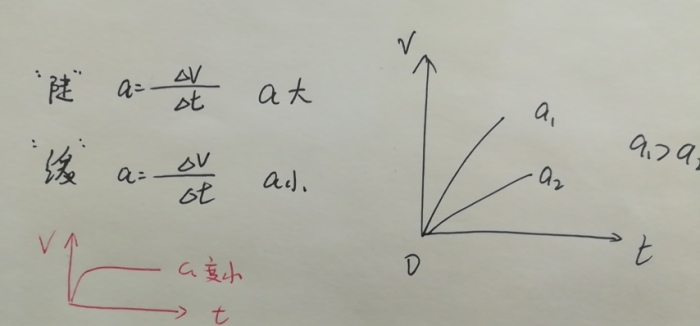 "陡" a=ΔV/Δt a大
"缓" a=ΔV/Δt a小.
V
a变小
t
V
a₁
a₂
a₁>a₂
0
t